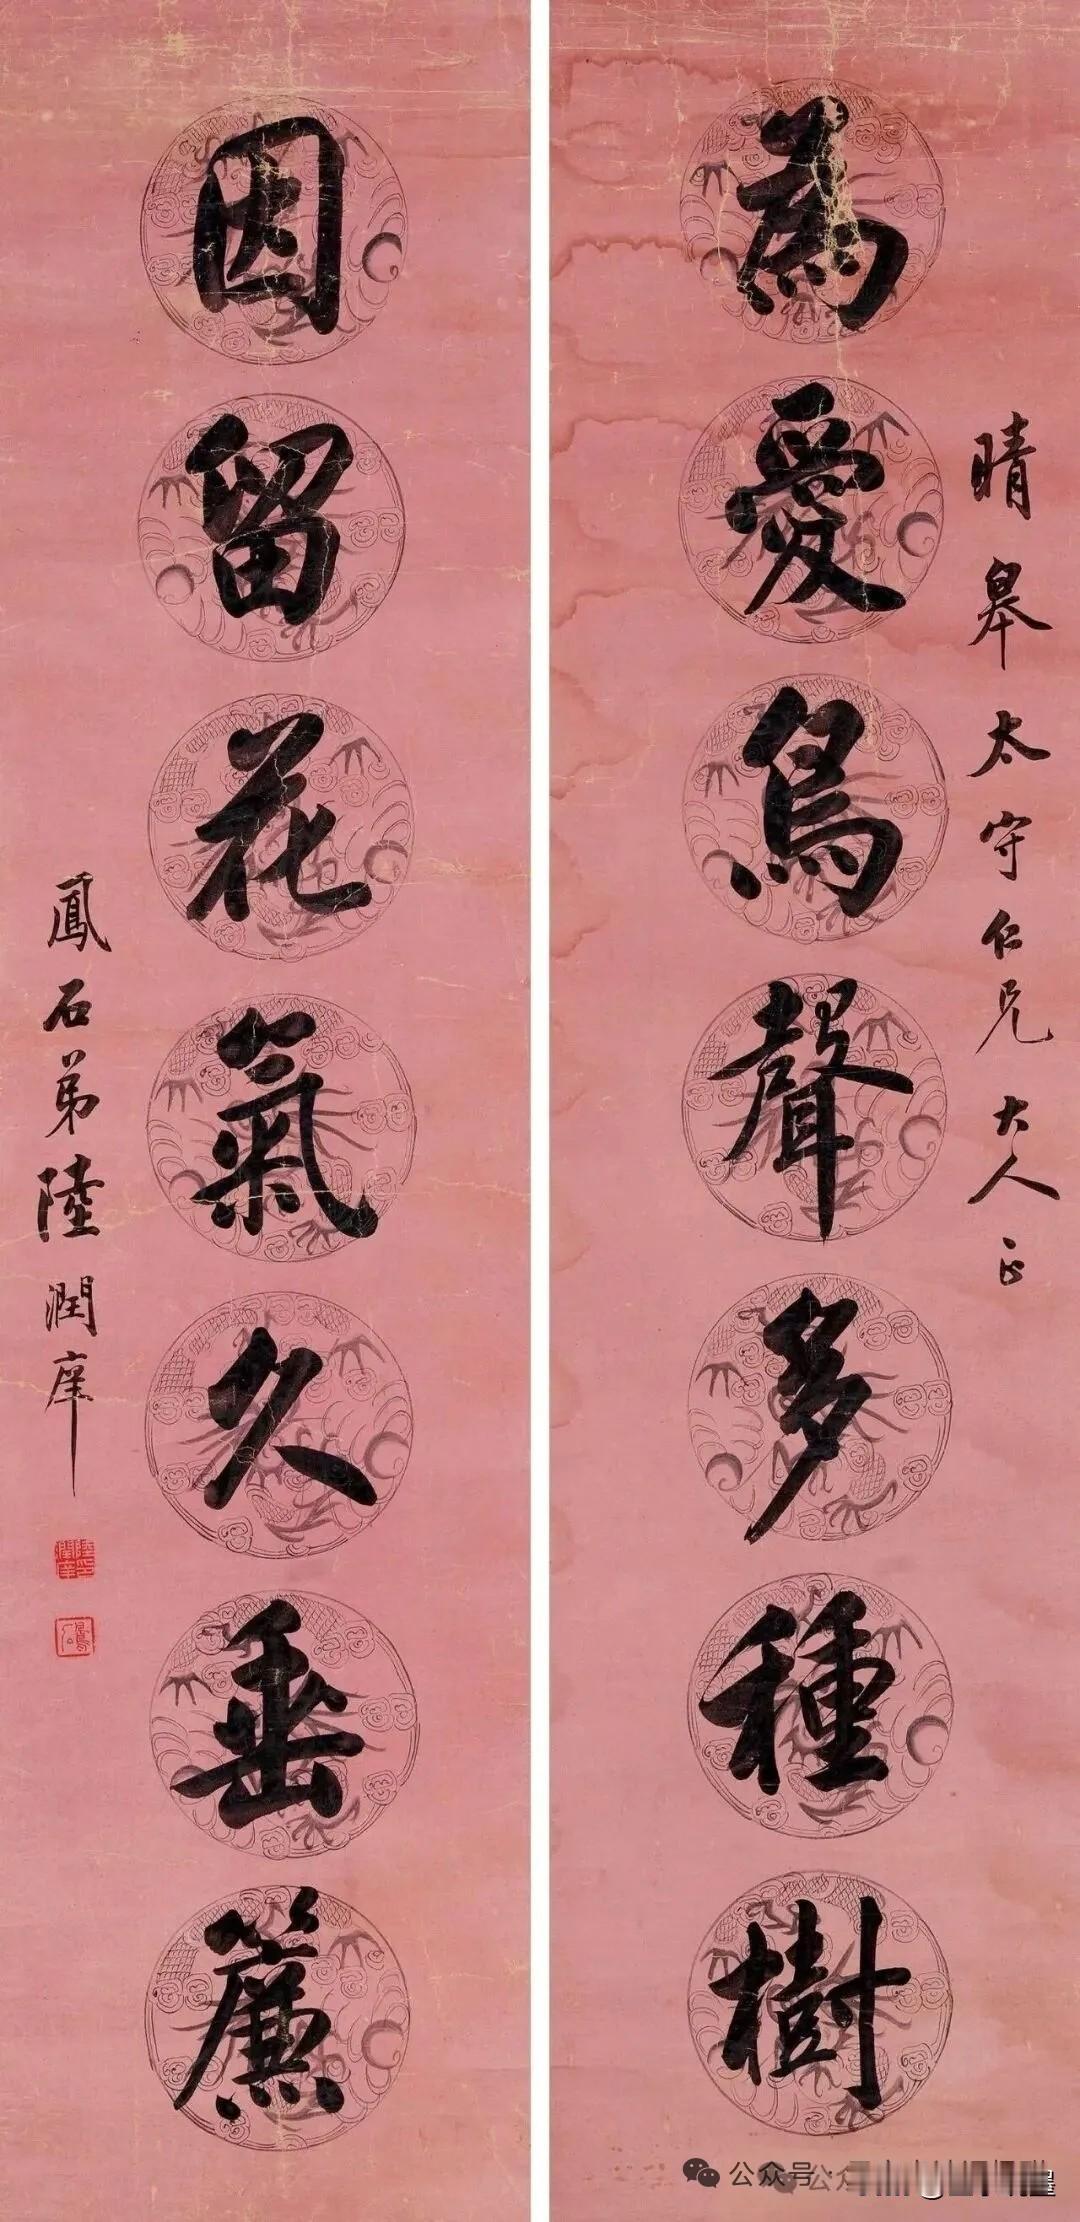 晴皋太守仁兄大人正
為愛鳥聲多種樹
因留花氣久垂簾
鳳石弟陸潤庠
陸印潤庠
鳳石
公众号